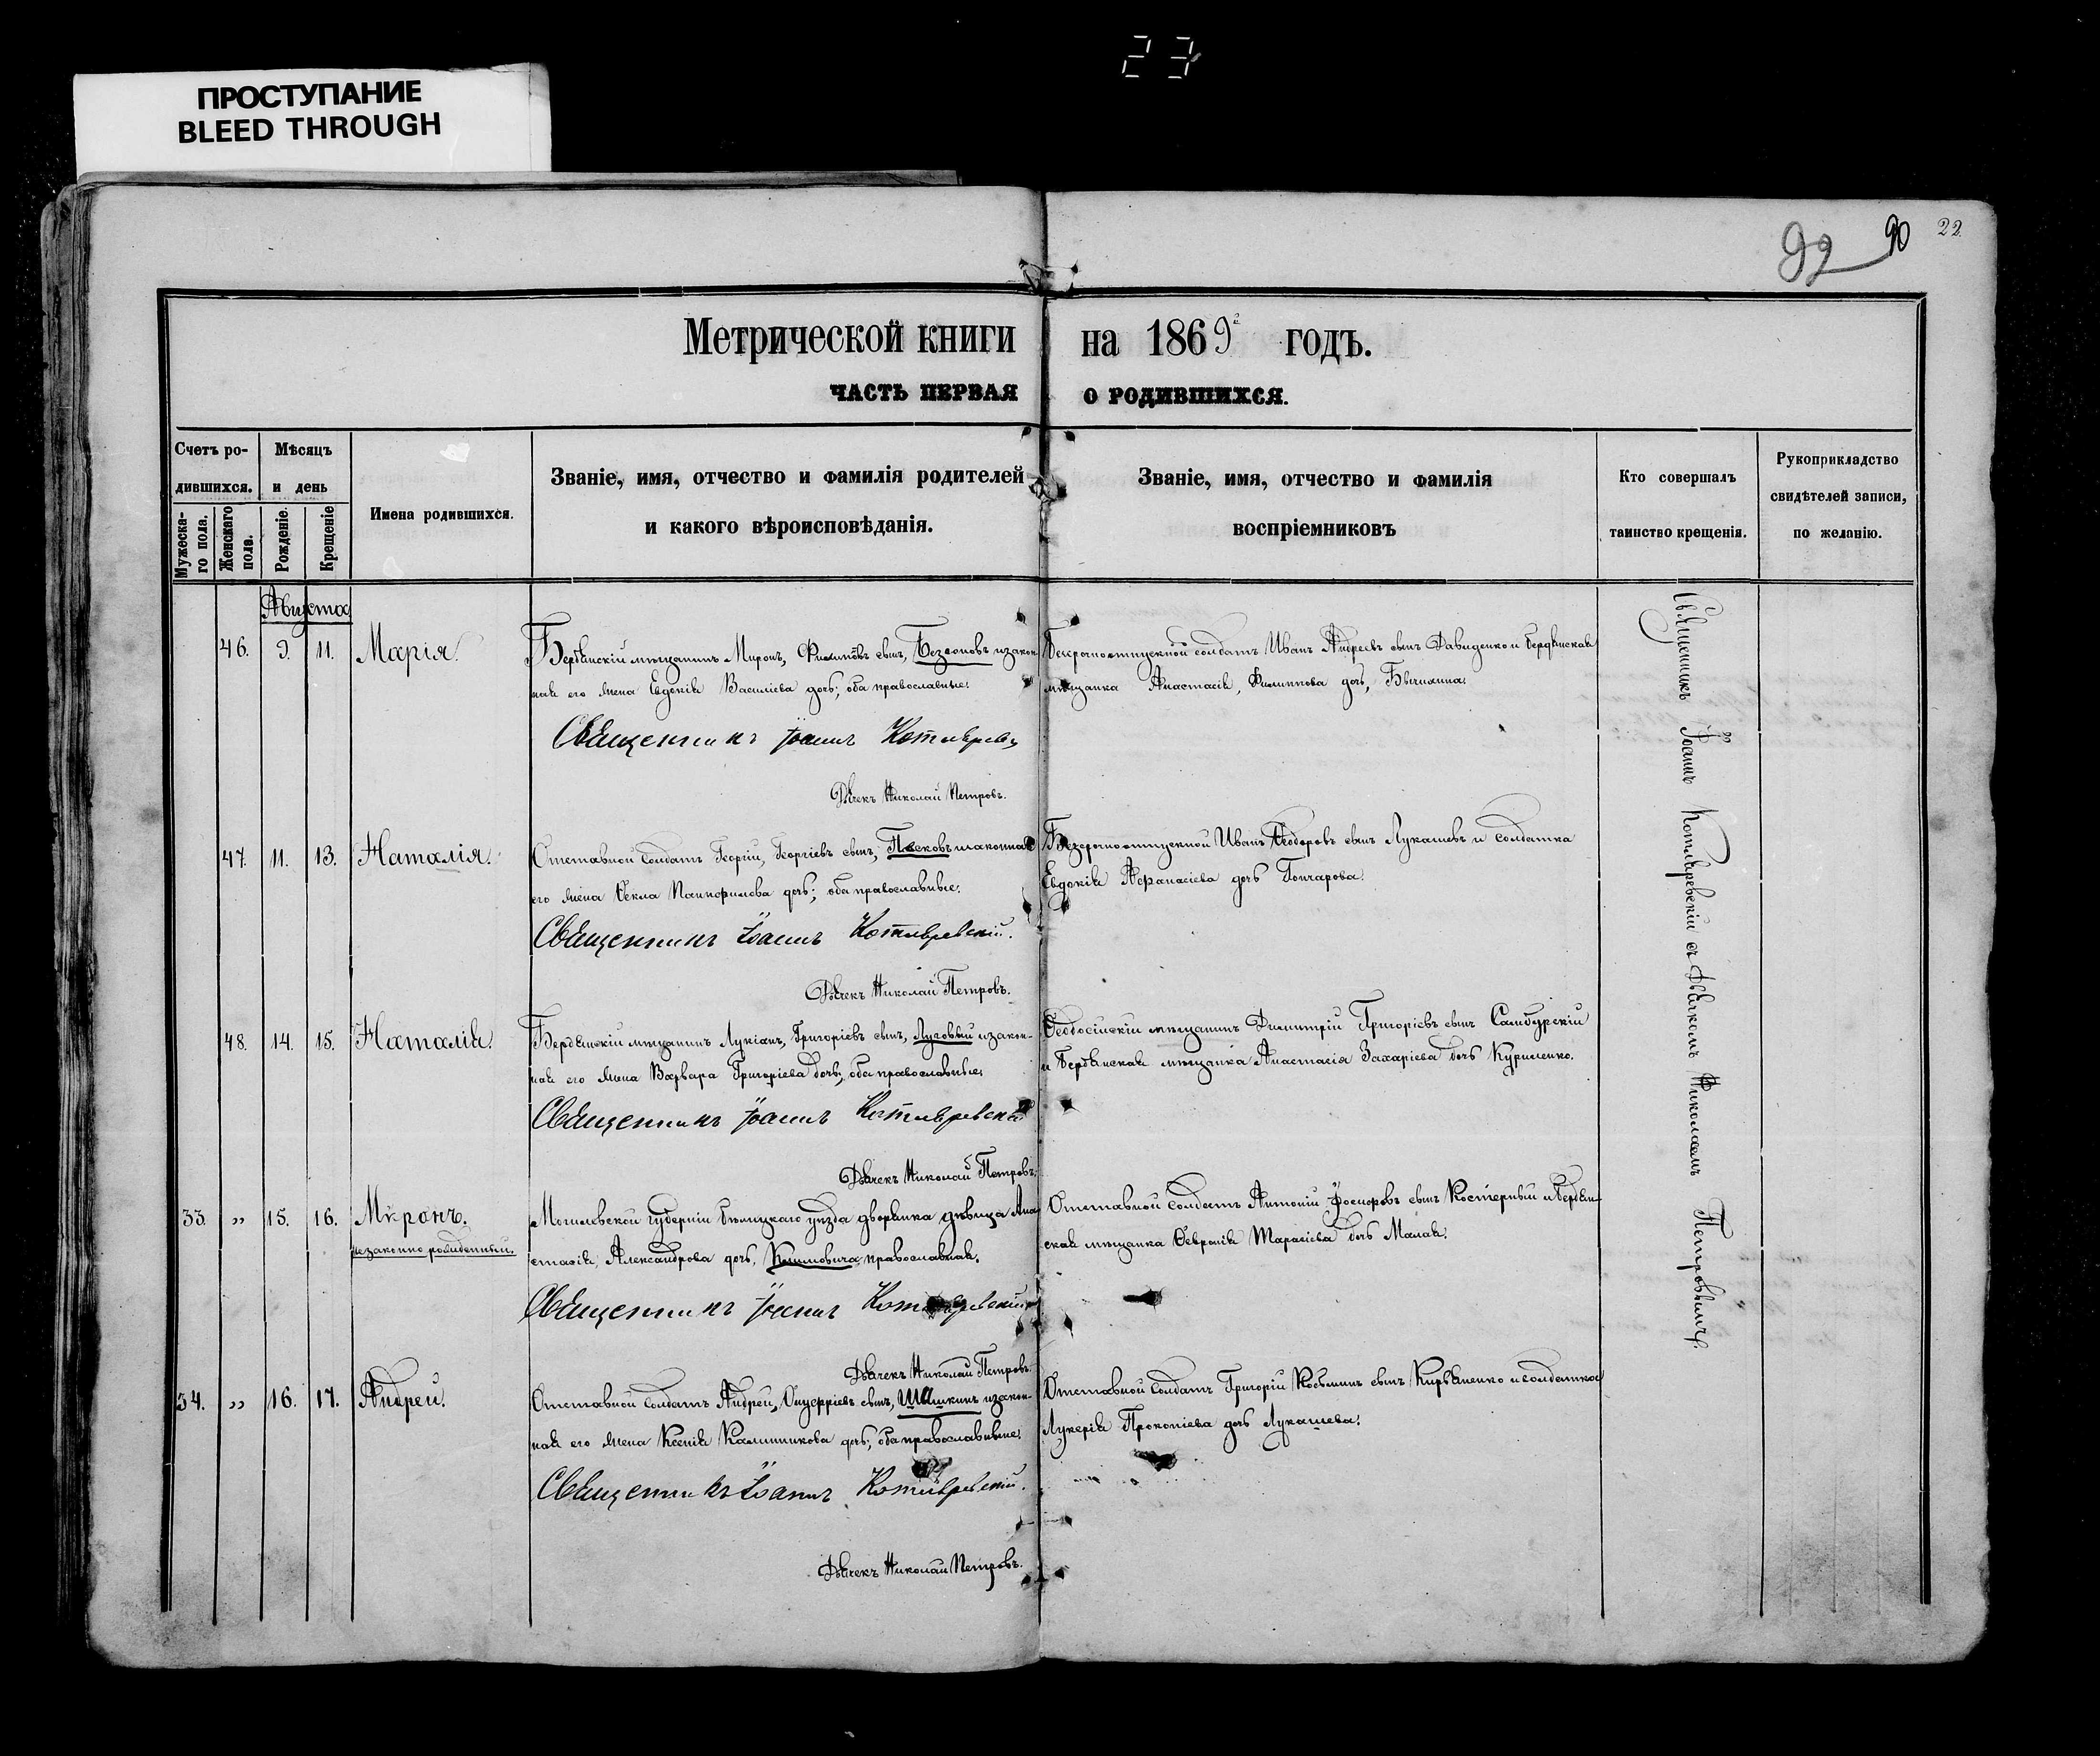 23
ПРОСТУПАНИЕ
BLEED THROUGH
92 90 22
Метрической книги на 1869 годъ.
ЧАСТЬ ПЕРВАЯ О РОДИВШИХСЯ.
Счетъ ро-
дившихся.
Мужеска-
го пола.
Женскаго
пола.
Мѣсяцъ
и день
Рожденіе.
Крещеніе
Имена родившихся.
Званіе, имя, отчество и фамилія родителей
и какого вѣроисповѣданія.
Званіе, имя, отчество и фамилія
воспріемниковъ
Кто совершалъ
таинство крещенія.
Рукоприкладство
свидѣтелей записи,
по желанію.
Августа
46. 9. 11. Марія.
Бердянскій мѣщанинъ Миронъ, Филиповъ сынъ, Безсоновъ и закон-
ная его жена Евдокія Василіева дочь; оба православные.
Безсрочноотпускной солдатъ Иванъ Андреевъ сынъ Давиденко и Бердянская
мѣщанка Анастасія, Филиппова дочь,
Священникъ Іоаннъ Котляревскій
Дьячекъ Николай Петровъ.
47. 11. 13. Наталія.
Отставной солдатъ Георгій, Георгіевъ сынъ, Песковъ и законная
его жена Ѳекла Панкофилова дочь; оба православные.
Безсрочноотпускной Иванъ Ѳеодоровъ сынъ Лукашевъ и солдатка
Евдокія Аѳанасіева дочь Гончарова.
Священникъ Іоаннъ Котляревскій.
Дьячекъ Николай Петровъ.
48. 14. 15. Наталія.
Бердянскій мѣщанинъ Лукіанъ, Григоріевъ сынъ, Луговый и закон-
ная его жена Варвара Григоріева дочь; оба православные.
Ѳеодосійскій мѣщанинъ Димитрій Григоріевъ сынъ Самбурскій
и Бердянская мѣщанка Анастасія Захаріева дочь Куриленко.
Священникъ Іоаннъ Котляревскій
Дьячекъ Николай Петровъ.
33. „ 15. 16. Миронъ.
незаконно рожденный.
Могилевской губерніи Бѣлицкаго уѣзда дворянка дѣвица Ана-
стасія, Александрова дочь, православная.
Отставной солдатъ Антоній сынъ Костерный и Бердян-
ская мѣщанка Ѳевронія Тарасіева дочь Малая.
Священникъ Іоаннъ Котляревскій
Дьячекъ Николай Петровъ.
34. „ 16. 17. Андрей.
Отставной солдатъ Андрей, Онуфріевъ сынъ, Шашкинъ и закон-
ная его жена Ксенія Калинникова дочь; оба православные.
Отставной солдатъ Григорій Косьминъ сынъ Кирьяненко и солдатка
Лукерія Прокопіева дочь Лукашева.
Священникъ Іоаннъ Котляревскій.
Дьячекъ Николай Петровъ.
Священникъ Іоаннъ Котляревскій съ дьячкомъ Николаемъ Петровымъ.